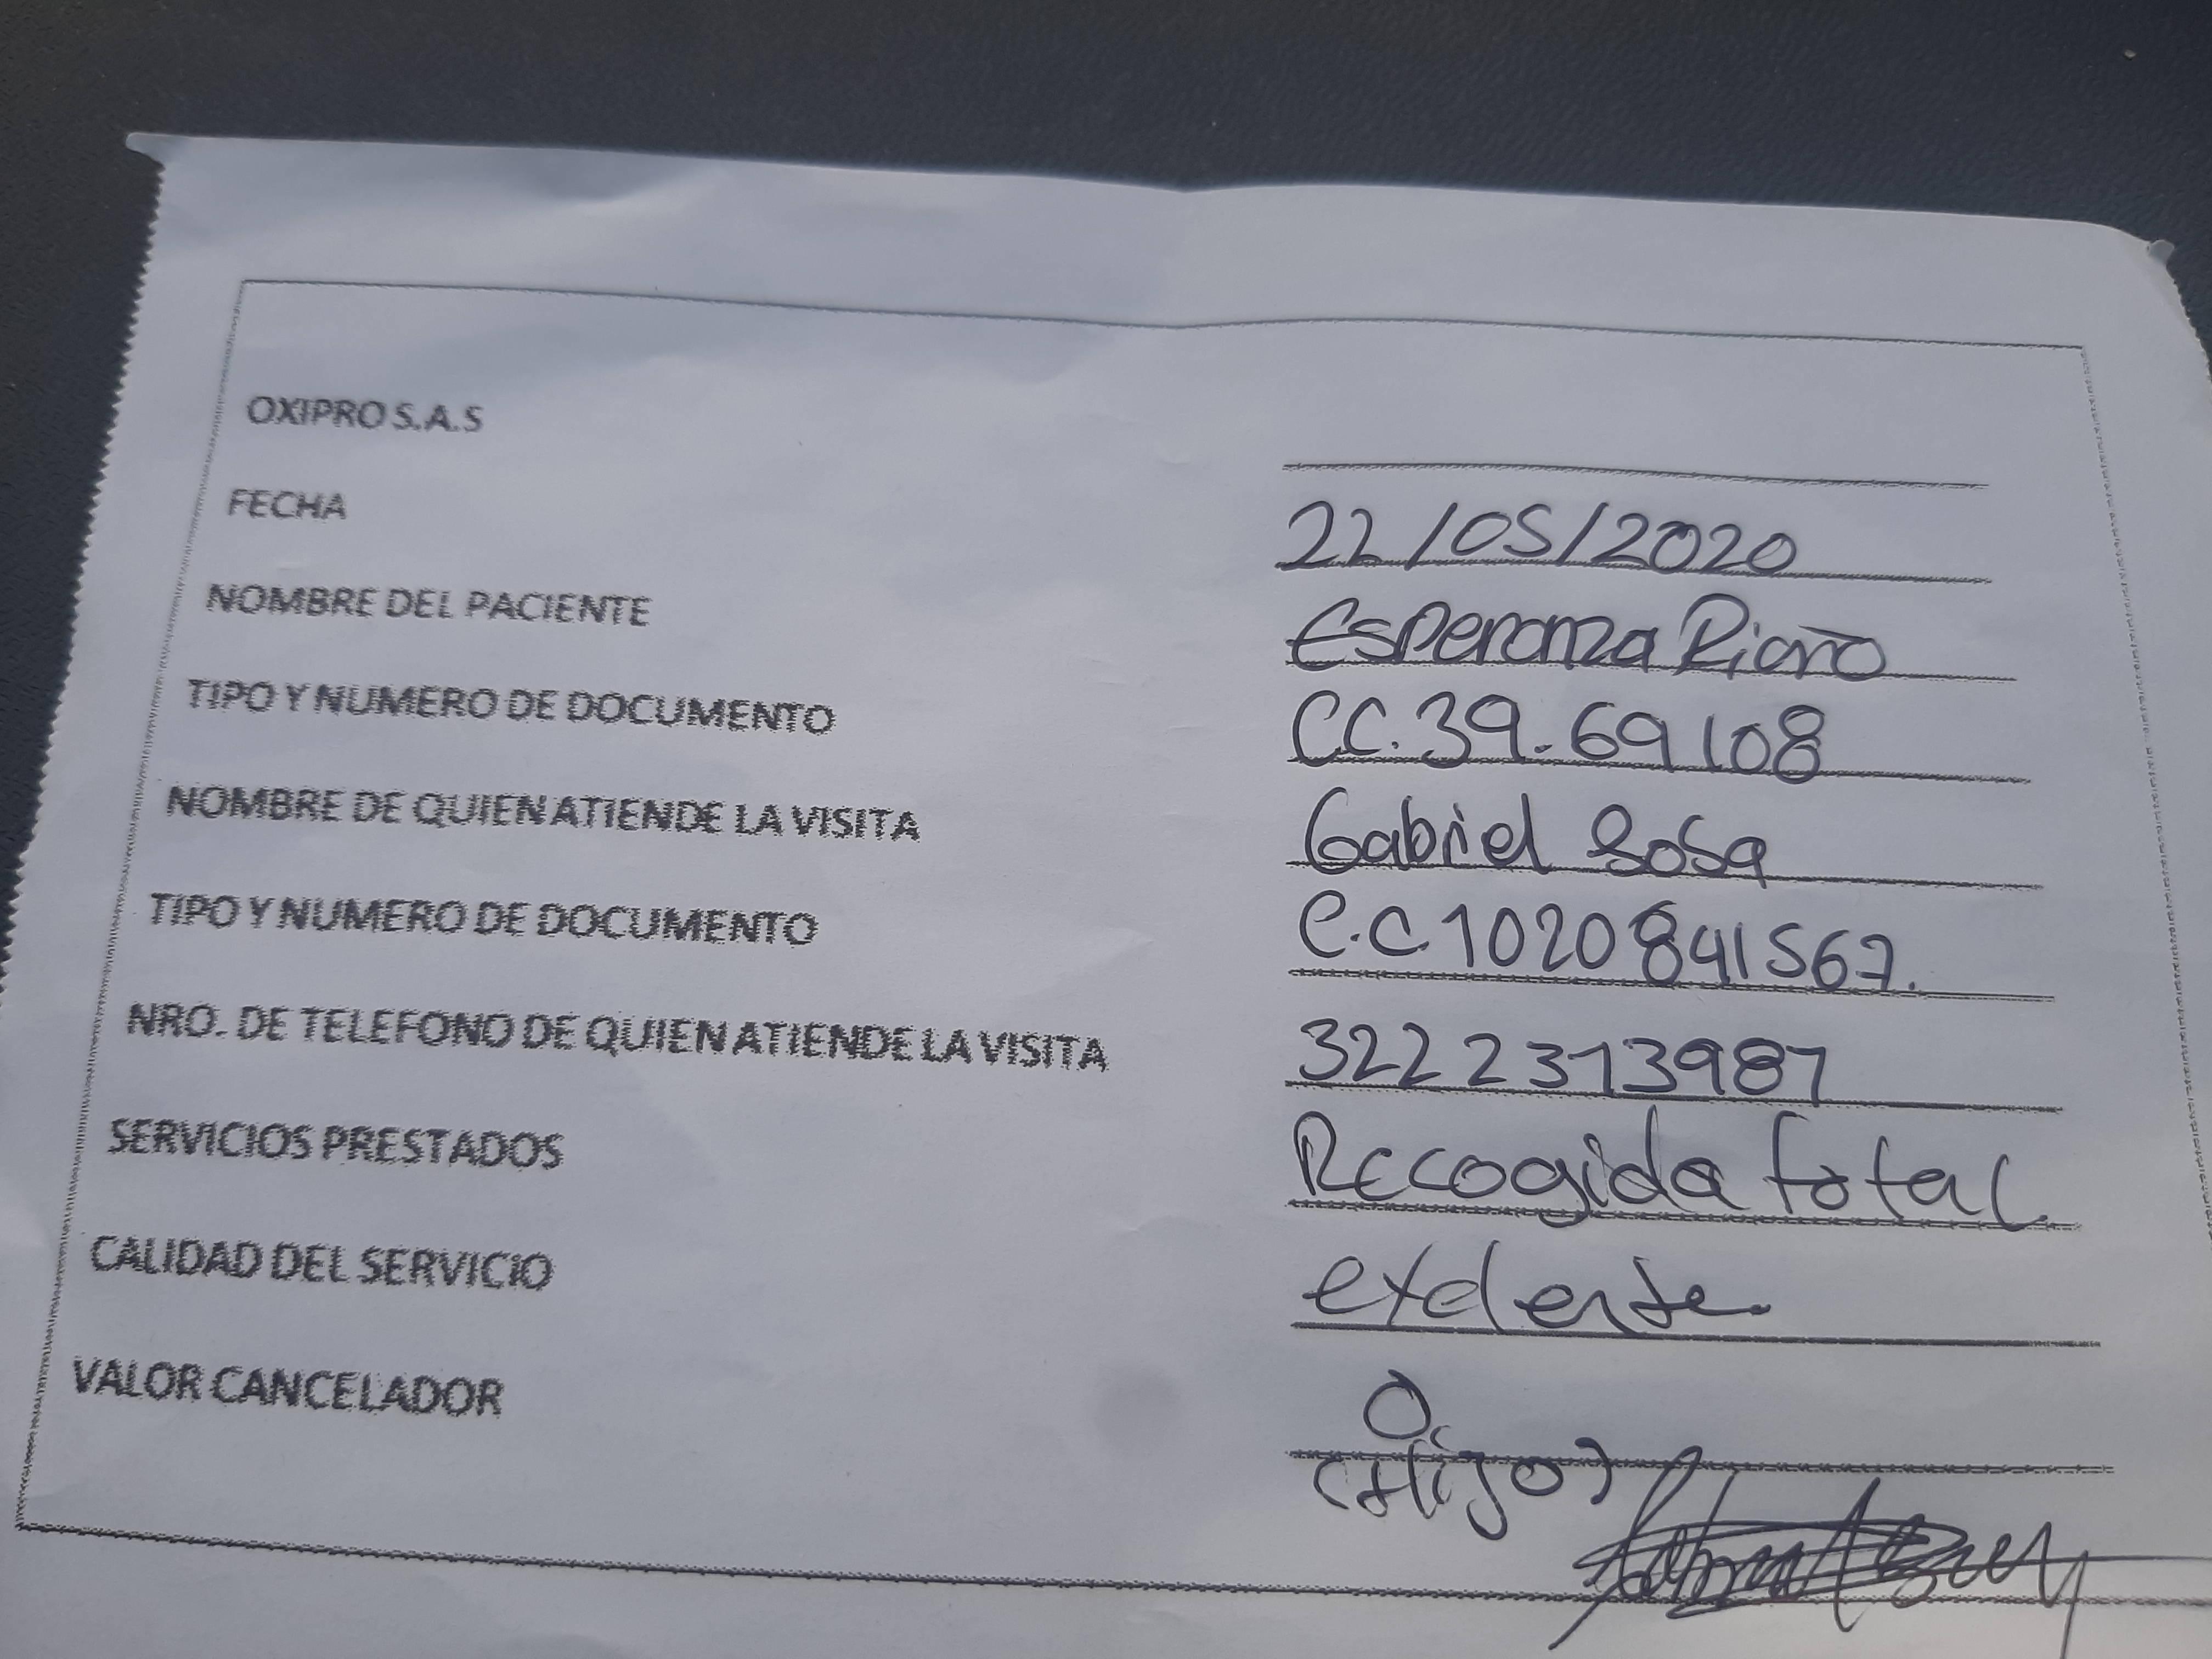 OXIPRO S.A.S
FECHA 22/05/2020
NOMBRE DEL PACIENTE Esperanza Riaño
TIPO Y NUMERO DE DOCUMENTO CC. 39.69108
NOMBRE DE QUIEN ATIENDE LA VISITA Gabriel Sosa
TIPO Y NUMERO DE DOCUMENTO C.C 1020841567.
NRO. DE TELEFONO DE QUIEN ATIENDE LA VISITA 3222313987
SERVICIOS PRESTADOS Recogida total
CALIDAD DEL SERVICIO exclente
VALOR CANCELADOR 0
(Hijo)